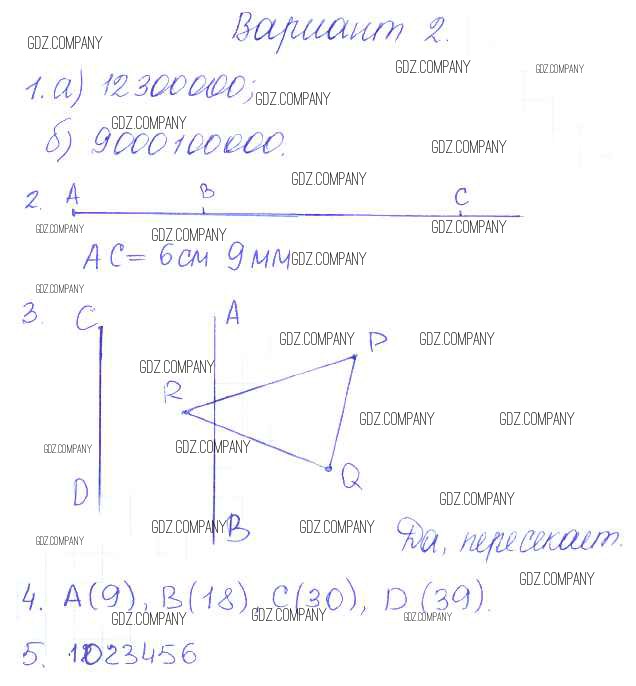 Вариант 2.
GDZ.COMPANY
GDZ.COMPANY
GDZ.COMPANY
1. а) 12300000;
GDZ.COMPANY
GDZ.COMPANY
б) 9000100000.
GDZ.COMPANY
GDZ.COMPANY
2. A B C
GDZ.COMPANY
GDZ.COMPANY
GDZ.COMPANY
AC = 6 см 9 мм
GDZ.COMPANY
GDZ.COMPANY
3. C A
GDZ.COMPANY
P
GDZ.COMPANY
GDZ.COMPANY
R
GDZ.COMPANY
GDZ.COMPANY
GDZ.COMPANY
GDZ.COMPANY
D Q
GDZ.COMPANY
GDZ.COMPANY
B
GDZ.COMPANY
GDZ.COMPANY
Да, пересекает.
GDZ.COMPANY
4. A(9), B(18), C(30), D(39).
GDZ.COMPANY
GDZ.COMPANY
GDZ.COMPANY
5. 1023456